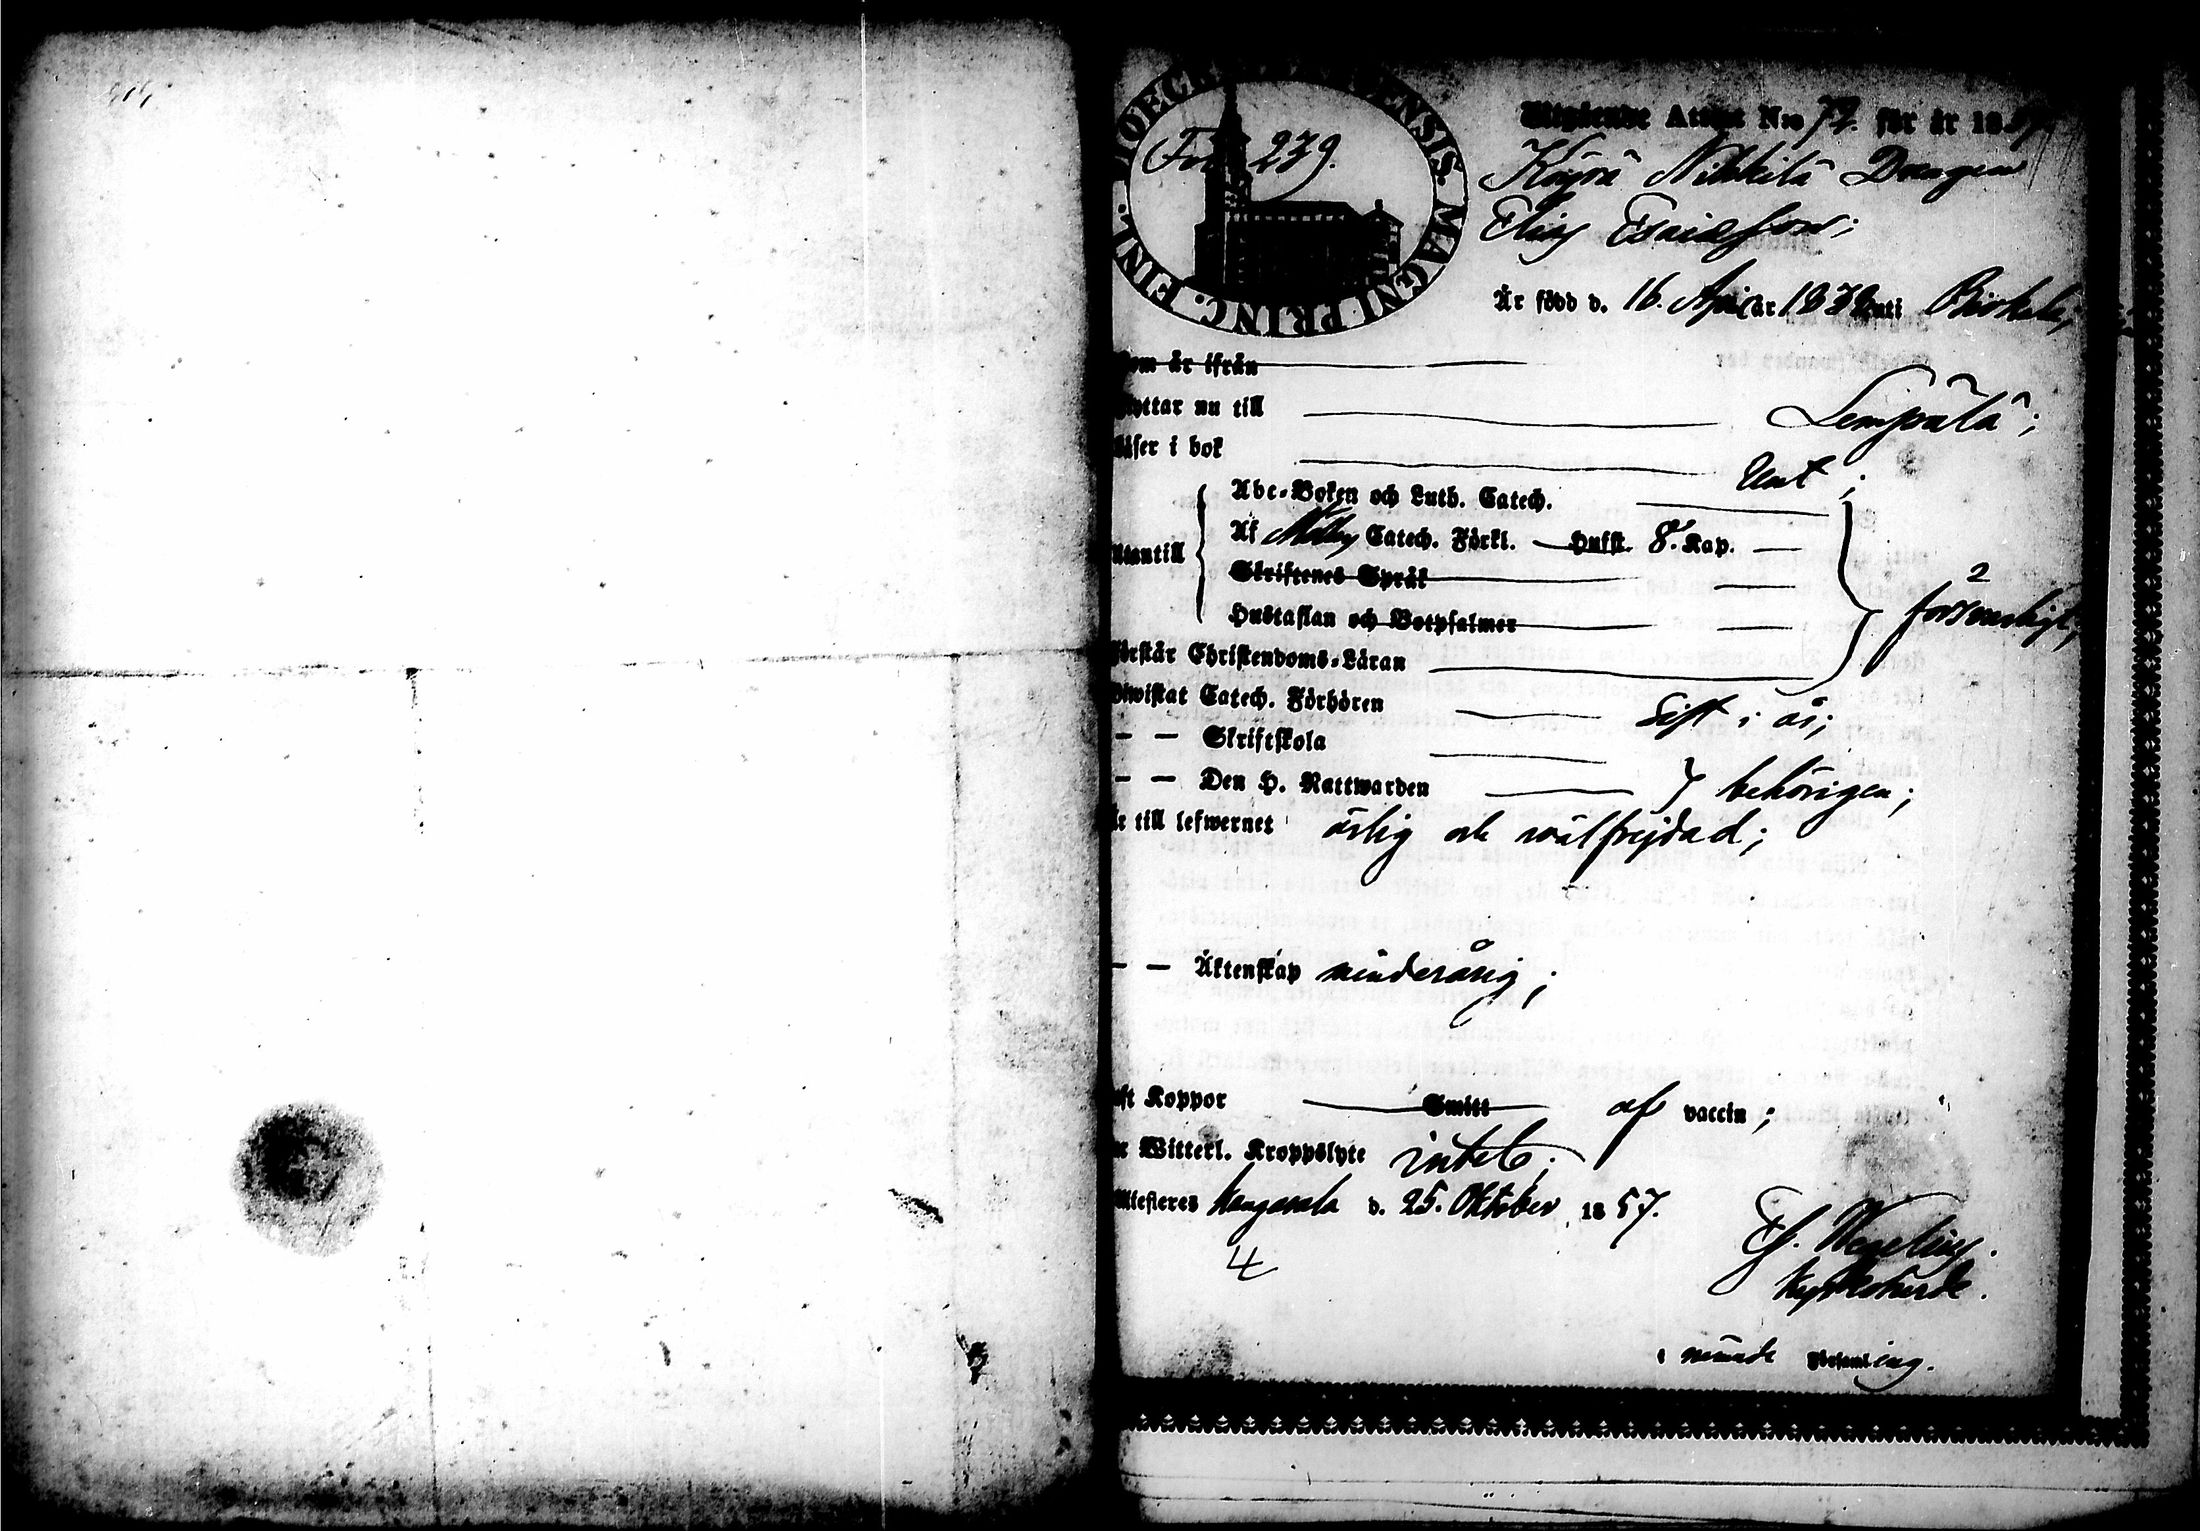 DIOEC ENSIS. MAGNI PRINC. FINL.
Fol 239.
Utgående Attest N:o 72. för år 1857
Köyrä Nikkilä Drengen
Elias Esaiasson;
Är född d. 16. Apr år 1839 uti Birkala,
Som är ifrån
flyttar nu till Lempälä;
Läser i bok Rent;
Abc-Boken och Luth. Catech.
Af Möllers Catech. Förkl. Hufst. 8. Kap.
Utantill
Skriftenes Språk
Hustaflan och Botpsalmer
försvarligt;
Förstår Christendoms-Läran
Biwistat Catech. Förhören Sist i år;
— — Skriftskola
— — Den H. Nattwarden behörigen;
Är till lefwernet ärlig och välfrejdad;
— — Äktenskap minderårig;
haft Koppor Smitt af vaccin;
Witterl. Kroppslyte intet;
Attesteras Kangasala d. 25. Oktober 1857.
4
Wegelius.
Kyrkoherde.
i nämnde Församling.